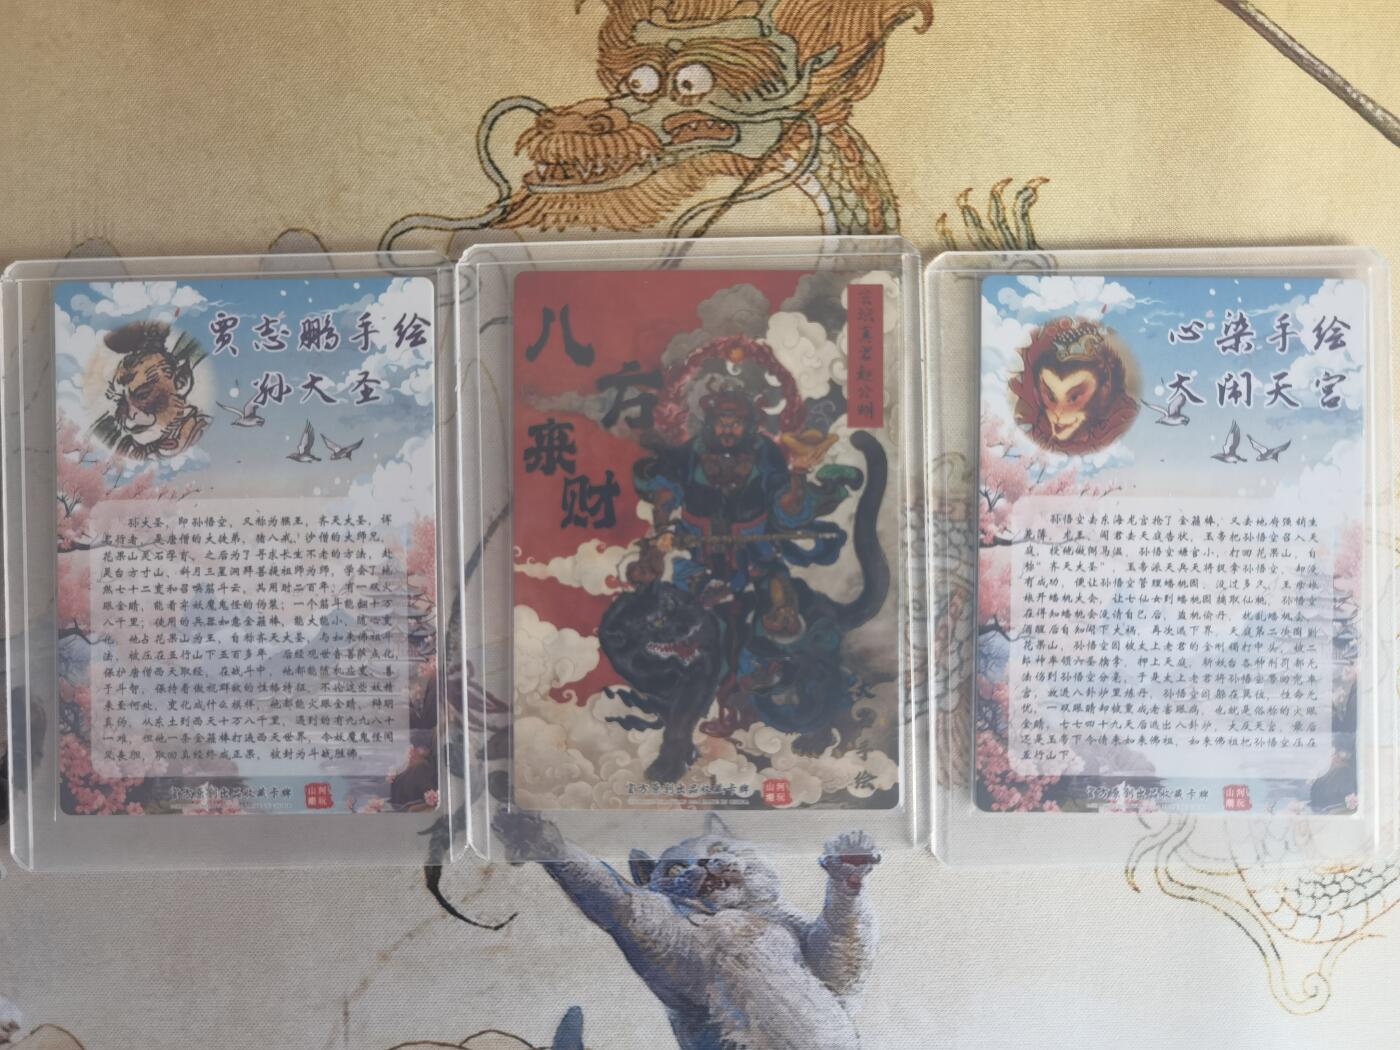 贾志鹏手绘
孙大圣
孙大圣，即孙悟空，又称为猴王，齐天大圣，诨
名行者，是唐僧的大徒弟，猪八戒，沙僧的大师兄，
花果山灵石孕育，之后为了寻求长生不老的方法，赴
灵台方寸山、斜月三星洞拜菩提祖师为师，学会了地
煞七十二变和召唤筋斗云，其用时二百年；有一双火
眼金睛，能看穿妖魔鬼怪的伪装；一个筋斗能翻十万
八千里；使用的兵器如意金箍棒，能大能小，随心变
化，他占花果山为王，自称齐天大圣，与如来佛祖斗
法，被压在五行山下五百多年，后经观世音菩萨点化，
保护唐僧西天取经，在战斗中，他都能随机应变，善
于斗智，保持着傲视群敌的性格特征，不论这些妖精
来至何处，变化成什么模样，他都能火眼金睛，辩明
真伪，从东土到西天十万八千里，遇到的有九九八十
一难，但他一条金箍棒打遍西天世界，令妖魔鬼怪闻
风丧胆，取回真经终成正果，被封为斗战胜佛。
官方原创出品收藏卡牌
山河潮玩
八方来财
玄坛真君赵公明
手绘
官方原创出品收藏卡牌
山河潮玩
心染手绘
大闹天宫
孙悟空去东海龙宫抢了金箍棒，又去地府强销生
死簿，龙王、阎君去天庭告状，玉帝把孙悟空召入天
庭，授他做弼马温，孙悟空嫌官小，打回花果山，自
称“齐天大圣”，玉帝派天兵天将捉拿孙悟空，却没
有成功，便让孙悟空管理蟠桃园，没过多久，王母娘
娘开蟠桃大会，让七仙女到蟠桃园摘取仙桃，孙悟空
在得知蟠桃会没请自己后，盗桃偷丹，扰乱蟠桃会，
酒醒后自知闯下大祸，再次逃下界，天庭第二次围剿
花果山，孙悟空因被太上老君的金刚镯打中头，被二
郎神率领六圣擒拿，押上天庭，斩妖台各种刑罚都无
法伤到孙悟空分毫，于是太上老君将孙悟空带回兜率
宫，放进八卦炉里炼丹，孙悟空因躲在巽位，性命无
忧，一双眼睛却被熏成老害眼病，也就是俗称的火眼
金睛，七七四十九天后逃出八卦炉，大反天宫，最后
还是玉帝下令请来如来佛祖，如来佛祖把孙悟空压在
五行山下。
官方原创出品收藏卡牌
山河潮玩